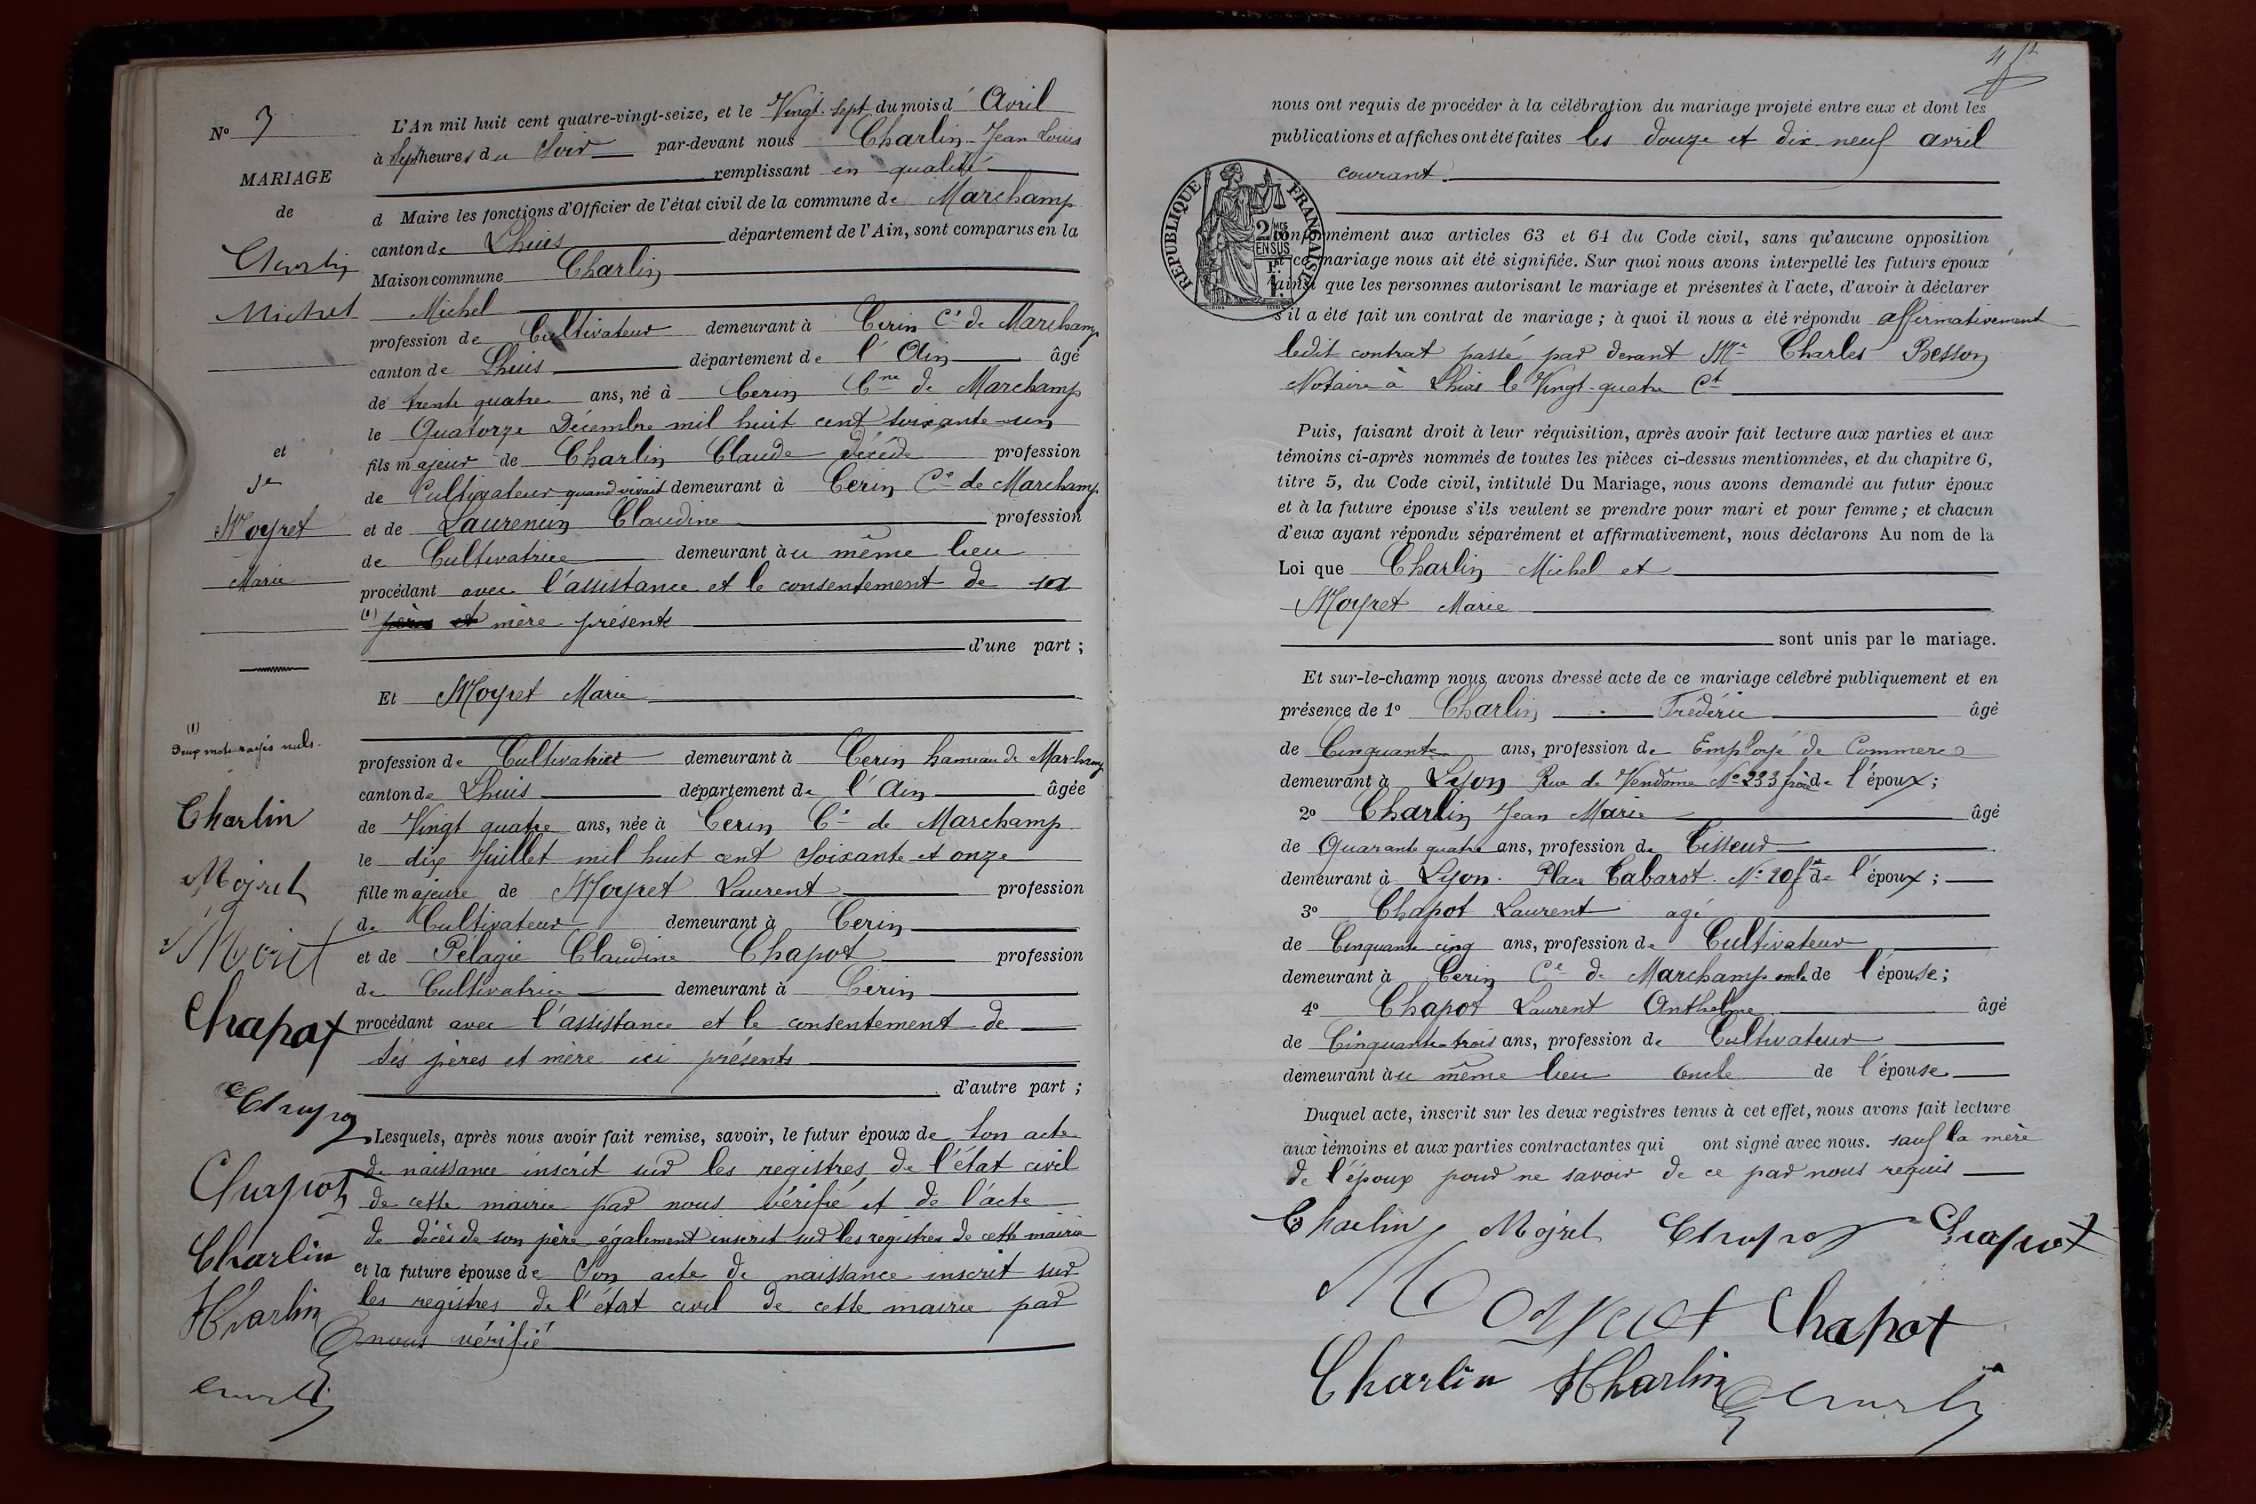 N° 3
MARIAGE
de
Charlin
Michel
et
Jne
Moyret
Marie
(1)
Deux mots rayés nuls.
Charlin
Mojret
Chapot
Chapot
Charlin
Charlin
L'An mil huit cent quatre-vingt-seize, et le Vingt-sept du mois d'Avril
à Sept heures du Soir par-devant nous Charlin Jean Louis
remplissant en qualité
d Maire les fonctions d'Officier de l'état civil de la commune de Marchamp
canton de Lhuis département de l'Ain, sont comparus en la
Maison commune Charlin
Michel
profession de Cultivateur demeurant à Cerin Ce de Marchamp
canton de Lhuis département de l'Ain âgé
de trente quatre ans, né à Cerin Cne de Marchamp
le Quatorze Décembre mil huit cent soixante-un
fils majeur de Charlin Claude décédé profession
de Cultivateur quand vivait demeurant à Cerin Ce de Marchamp
et de Laurencin Claudine profession
de Cultivatrice demeurant àu même lieu
procédant avec l'assistance et le consentement de ses
(1) père et mère présents
d'une part ;
Et Moyret Marie
profession de Cultivatrice demeurant à Cerin hameau de Marchamp
canton de Lhuis département de l'Ain âgée
de Vingt quatre ans, née à Cerin Ce de Marchamp
le dix Juillet mil huit cent soixante et onze
fille majeure de Moyret Laurent profession
de Cultivateur demeurant à Cerin
et de Pélagie Claudine Chapot profession
de Cultivatrice demeurant à Cerin
procédant avec l'assistance et le consentement de
ses pères et mère ici présents
d'autre part ;
Lesquels, après nous avoir fait remise, savoir, le futur époux de son acte
de naissance inscrit sur les registres de l'état civil
de cette mairie par nous vérifié et de l'acte
de décès de son père également inscrit sur les registres de cette mairie
et la future épouse de Son acte de naissance inscrit sur
les registres de l'état civil de cette mairie par
nous vérifié
nous ont requis de procéder à la célébration du mariage projeté entre eux et dont les
publications et affiches ont été faites les douze et dix neuf avril
courant.
REPUBLIQUE FRANÇAISE
2/10mes EN SUS
1F.
conformément aux articles 63 et 64 du Code civil, sans qu'aucune opposition
à ce mariage nous ait été signifiée. Sur quoi nous avons interpellé les futurs époux
ainsi que les personnes autorisant le mariage et présentes à l'acte, d'avoir à déclarer
s'il a été fait un contrat de mariage ; à quoi il nous a été répondu affirmativement
ledit contrat passé par devant Me Charles Besson
Notaire à Lhuis le Vingt-quatre Ct
Puis, faisant droit à leur réquisition, après avoir fait lecture aux parties et aux
témoins ci-après nommés de toutes les pièces ci-dessus mentionnées, et du chapitre 6,
titre 5, du Code civil, intitulé Du Mariage, nous avons demandé au futur époux
et à la future épouse s'ils veulent se prendre pour mari et pour femme ; et chacun
d'eux ayant répondu séparément et affirmativement, nous déclarons Au nom de la
Loi que Charlin Michel et
Moyret Marie
sont unis par le mariage.
Et sur-le-champ nous avons dressé acte de ce mariage célébré publiquement et en
présence de 1° Charlin Frédéric âgé
de Cinquante ans, profession de Employé de Commerce
demeurant à Lyon Rue de Vendome N° 233 frère de l'époux ;
2° Charlin Jean Marie âgé
de Quarante quatre ans, profession de Tisseur
demeurant à Lyon. Place Tabarot. N° 20 fre de l'époux ;
3° Chapot Laurent agé
de Cinquante cinq ans, profession de Cultivateur
demeurant à Cerin Ce de Marchamp oncle de l'épouse ;
4° Chapot Laurent Anthelme âgé
de Cinquante-trois ans, profession de Cultivateur
demeurant àu même lieu oncle de l'épouse
Duquel acte, inscrit sur les deux registres tenus à cet effet, nous avons fait lecture
aux témoins et aux parties contractantes qui ont signé avec nous. sauf la mère
de l'époux pour ne savoir de ce par nous requis
Charlin Mojret Chapot Chapot
Moyret Chapot
Charlin Charlin